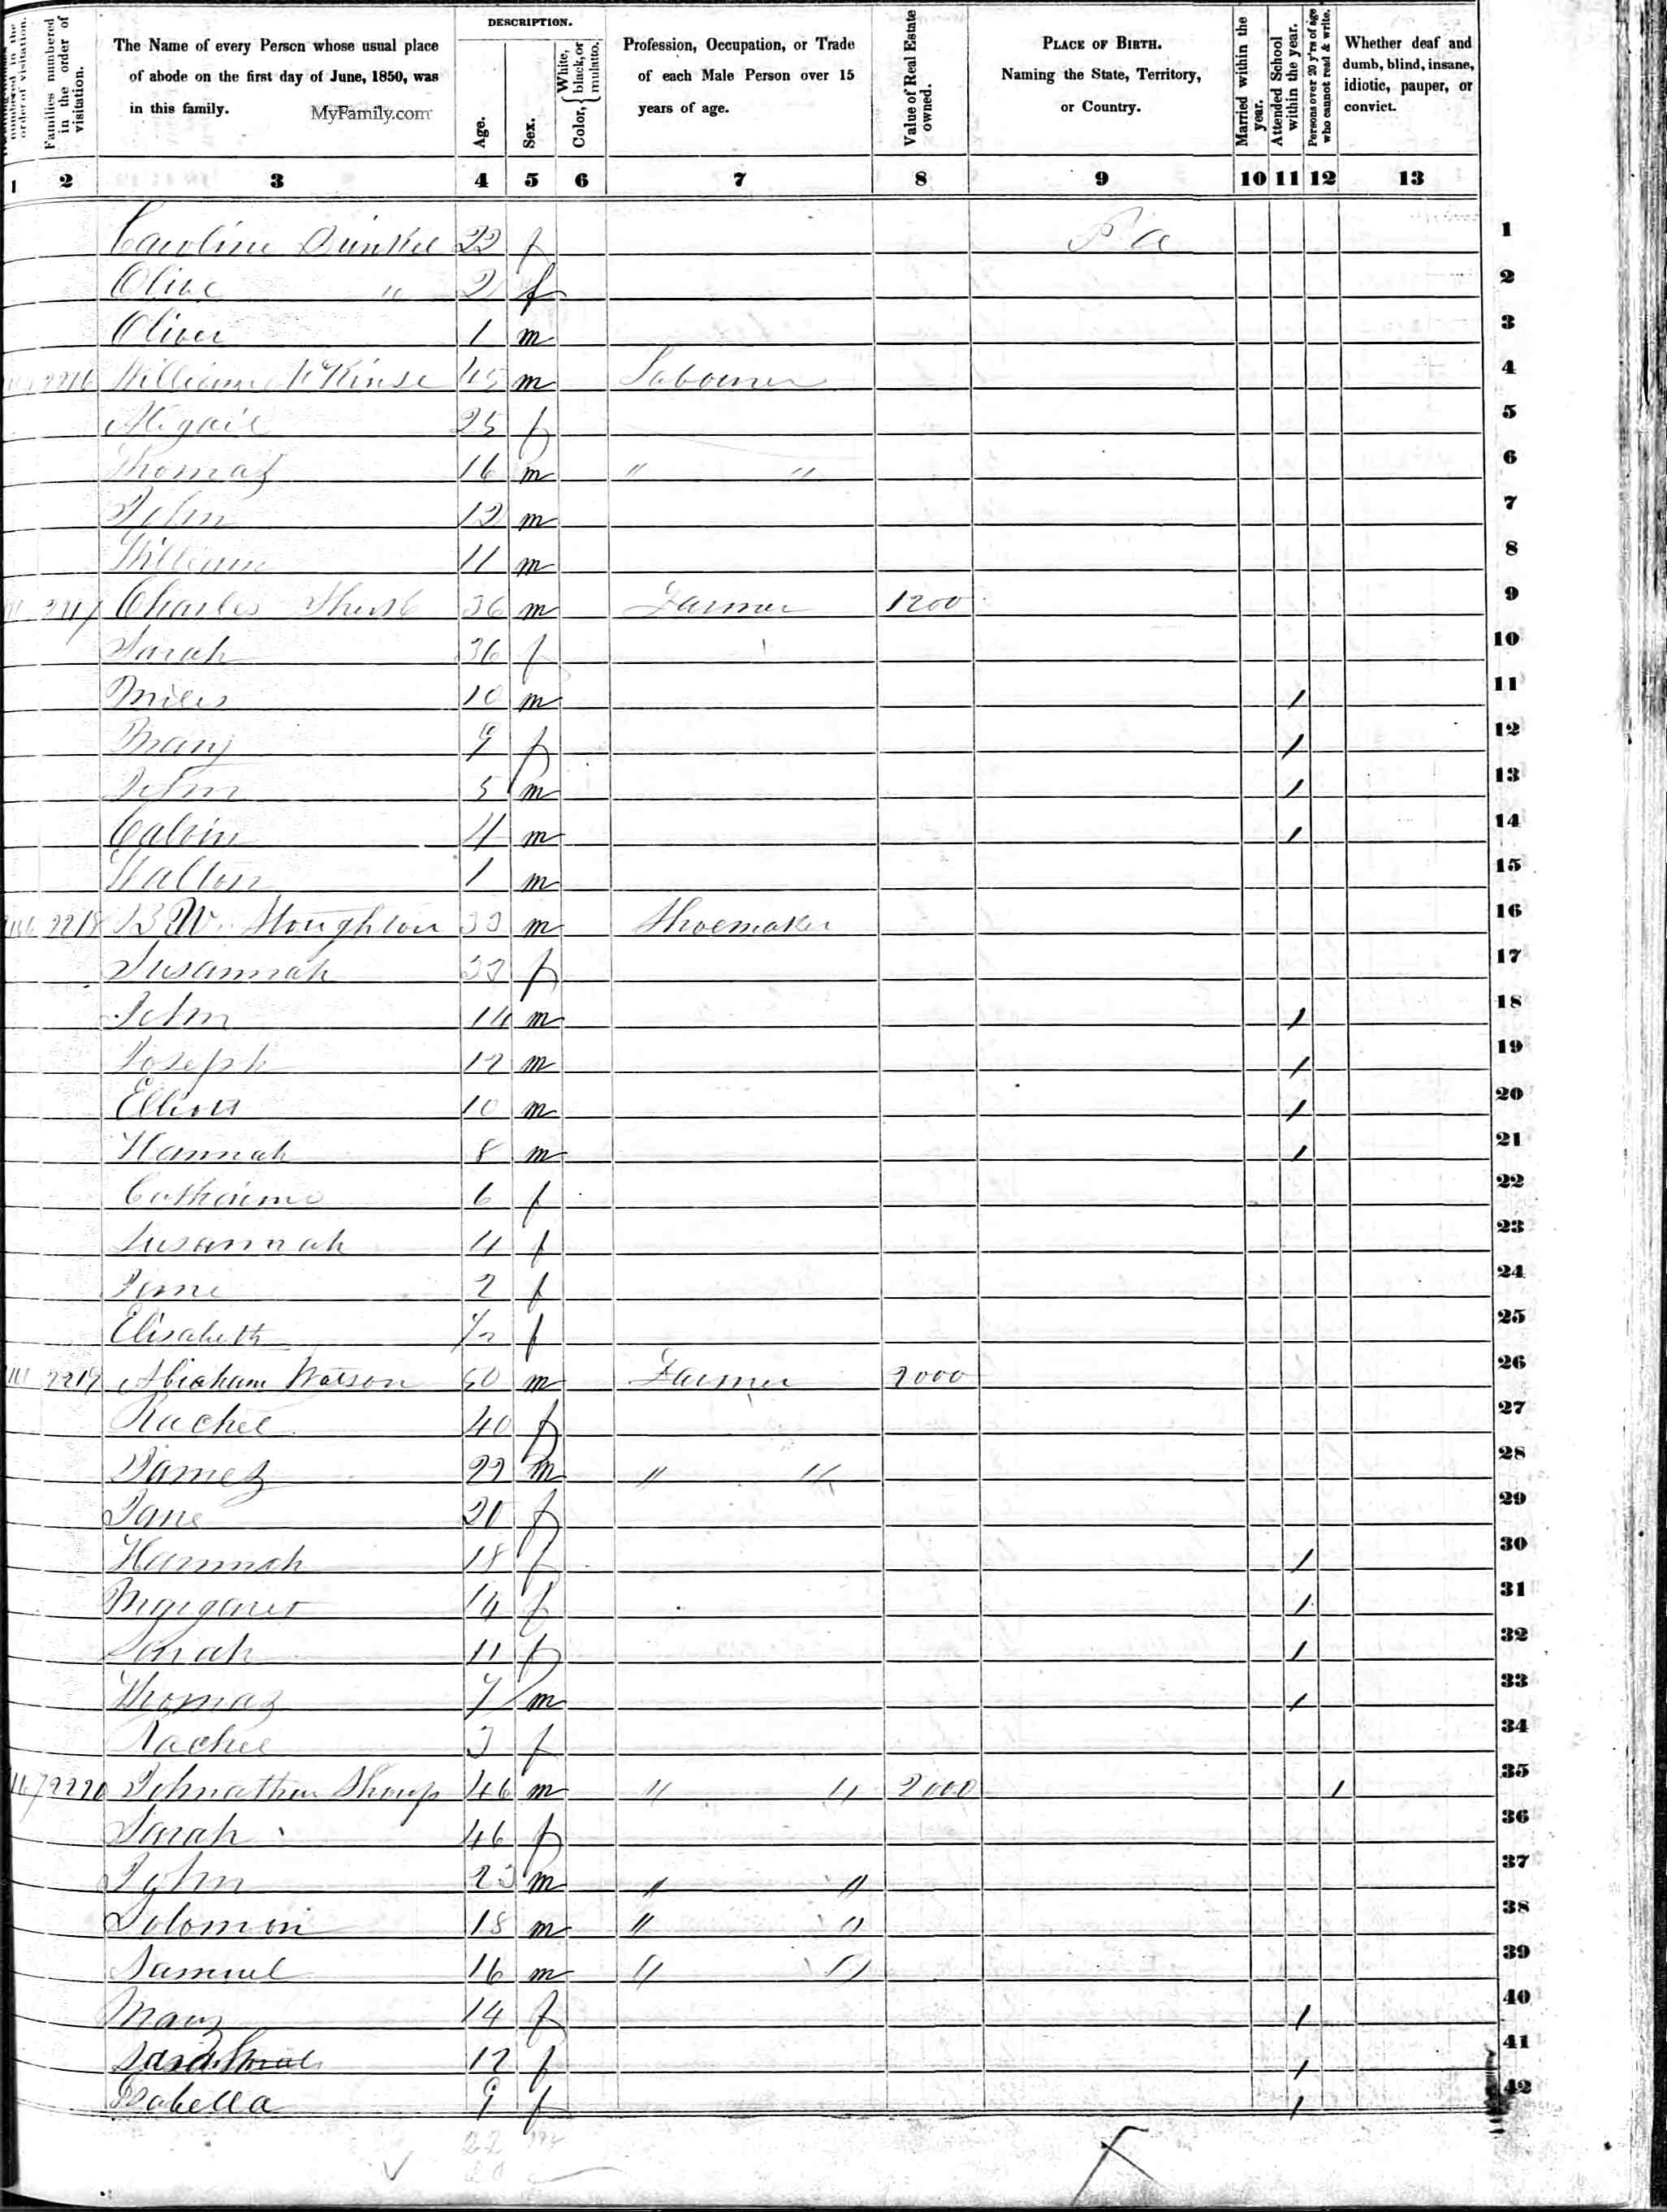 DESCRIPTION.
numbered in the order of visitation.
Families numbered in the order of visitation.
The Name of every Person whose usual place of abode on the first day of June, 1850, was in this family.
MyFamily.com
Age.
Sex.
Color, { White, black, or mulatto.
Profession, Occupation, or Trade of each Male Person over 15 years of age.
Value of Real Estate owned.
PLACE OF BIRTH. Naming the State, Territory, or Country.
Married within the year.
Attended School within the year.
Persons over 20 y'rs of age who cannot read & write.
Whether deaf and dumb, blind, insane, idiotic, pauper, or convict.
1 2 3 4 5 6 7 8 9 10 11 12 13
Caroline Dunkel 22 f Pa 1
Olive " 2 f 2
Oliver 1 m 3
2216 William McKinse 45 m Labourer 4
Abigail 25 f 5
Thomas 16 m " " 6
John 12 m 7
William 11 m 8
2217 Charles 36 m Farmer 1200 9
Sarah 36 f 10
Miles 10 m / 11
Mary 9 f / 12
John 5 m / 13
Calvin 4 m / 14
Walton 1 m 15
2218 B W Stoughton 33 m Shoemaker 16
Susannah 33 f 17
John 14 m / 18
Joseph 12 m / 19
Elliott 10 m / 20
Hannah 8 m / 21
Catharine 6 f 22
Susannah 4 f 23
Jane 2 f 24
Elisabeth f 25
2219 Abraham Watson m Farmer 2000 26
Rachel 40 f 27
James 22 m " " 28
Jane 20 f 29
Hannah 18 f / 30
Margaret 14 f / 31
Sarah 11 f / 32
Thomas 7 m / 33
Rachel 3 f 34
2220 Johnathan Shoup 46 m " " 2000 / 35
Sarah 46 f 36
John 23 m " " 37
Solomon 18 m " " 38
Samuel 16 m " " 39
Mary 14 f / 40
Sarah 12 f / 41
Isabella 9 f / 42